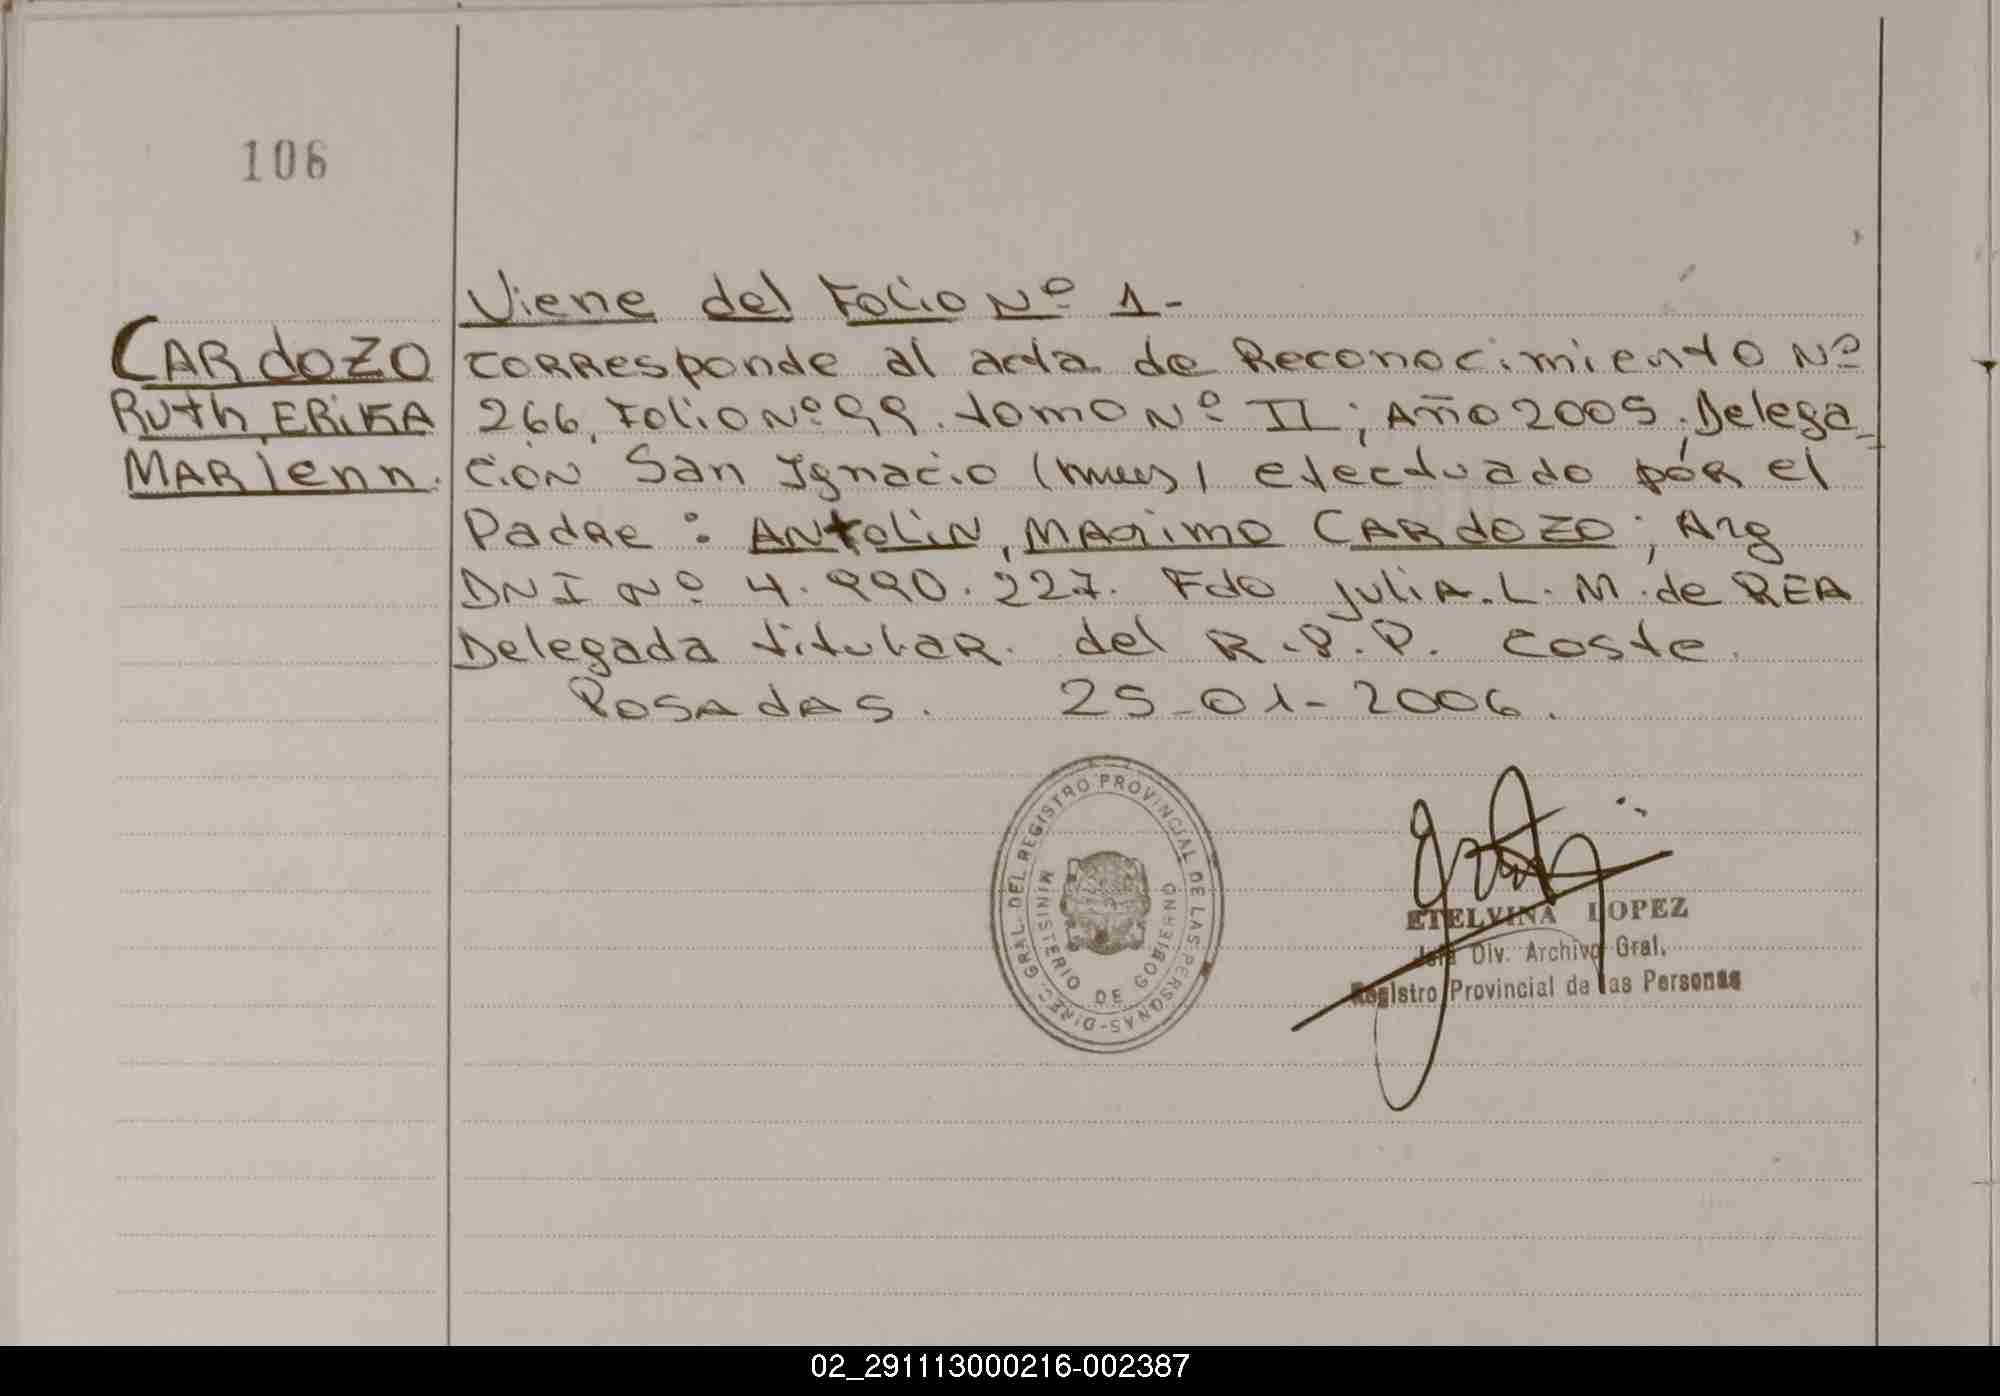 106
Viene del Folio Nº 1-
CARdOZO
Ruth, ERiKA
MARlenn.
CORResponde al acta de Reconocimiento Nº
266, Folio Nº 99. tomo Nº II; Año 2005. Delega-
ción San Ignacio (mnes) efectuado por el
Padre: ANtoliN, MAximo CARdOZO; Arg
DNI Nº 4.990.227. Fdo Julia.L.M.de REA
Delegada titular. del R.P.P. Coste.
POSAdAS. 25-01-2006.
DIREC. GRAL. DEL REGISTRO PROVINCIAL DE LAS PERSONAS-
MINISTERIO DE GOBIERNO
ETELVINA LOPEZ
Jefa Div. Archivo Gral.
Registro Provincial de las Personas
02_291113000216-002387